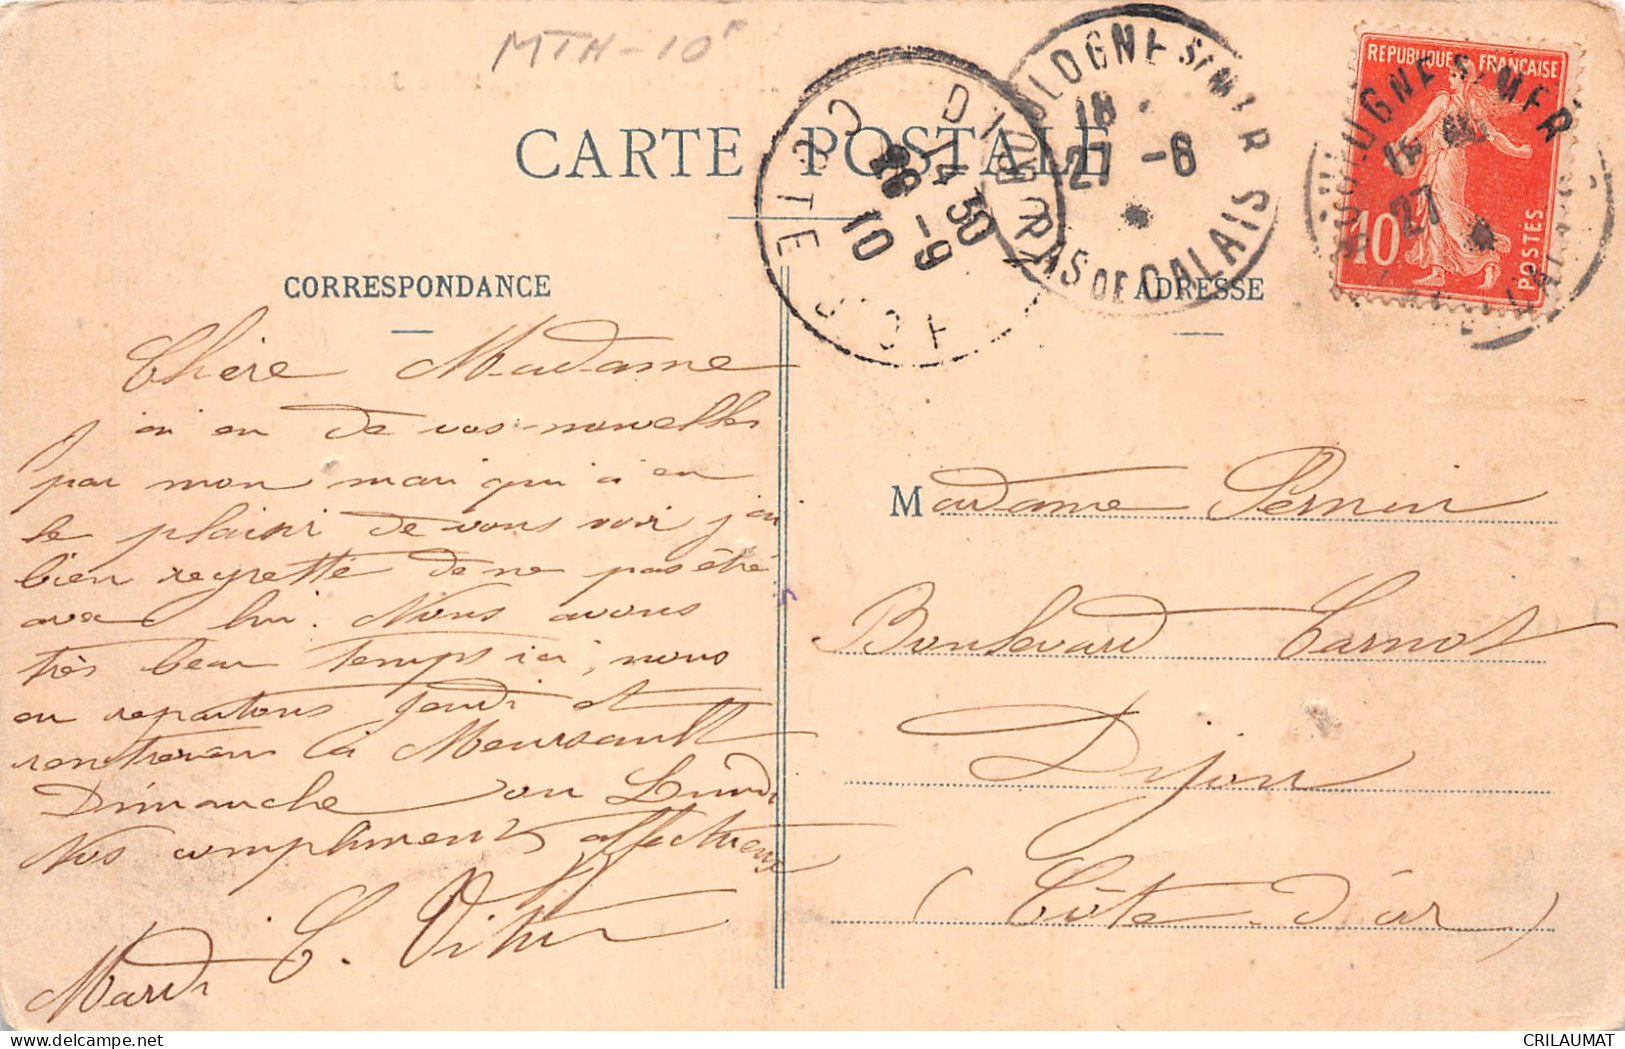 MTH-10F
CARTE POSTALE
BOULOGNE S/MER
18
27 -6
PAS DE CALAIS
DIJON
14 30
28 -9
10
COTE D'OR
REPUBLIQUE FRANÇAISE
10
POSTES
BOULOGNE S/MER
27
CORRESPONDANCE
ADRESSE
Chère Madame
J ai eu de vos nouvelles
par mon mari qui a eu
le plaisir de vous voir j'ai
bien regretté de ne pas été
avec lui. Nous avons
très beau temps ici, nous
en repartons Jeudi et
rentrerons à Meursault
Dimanche ou Lundi
Nos compliments affectueux
Mardi C.
Madame Pernin
Boulevard Carnot
Dijon
(Côte-d'or)
CRILAUMAT